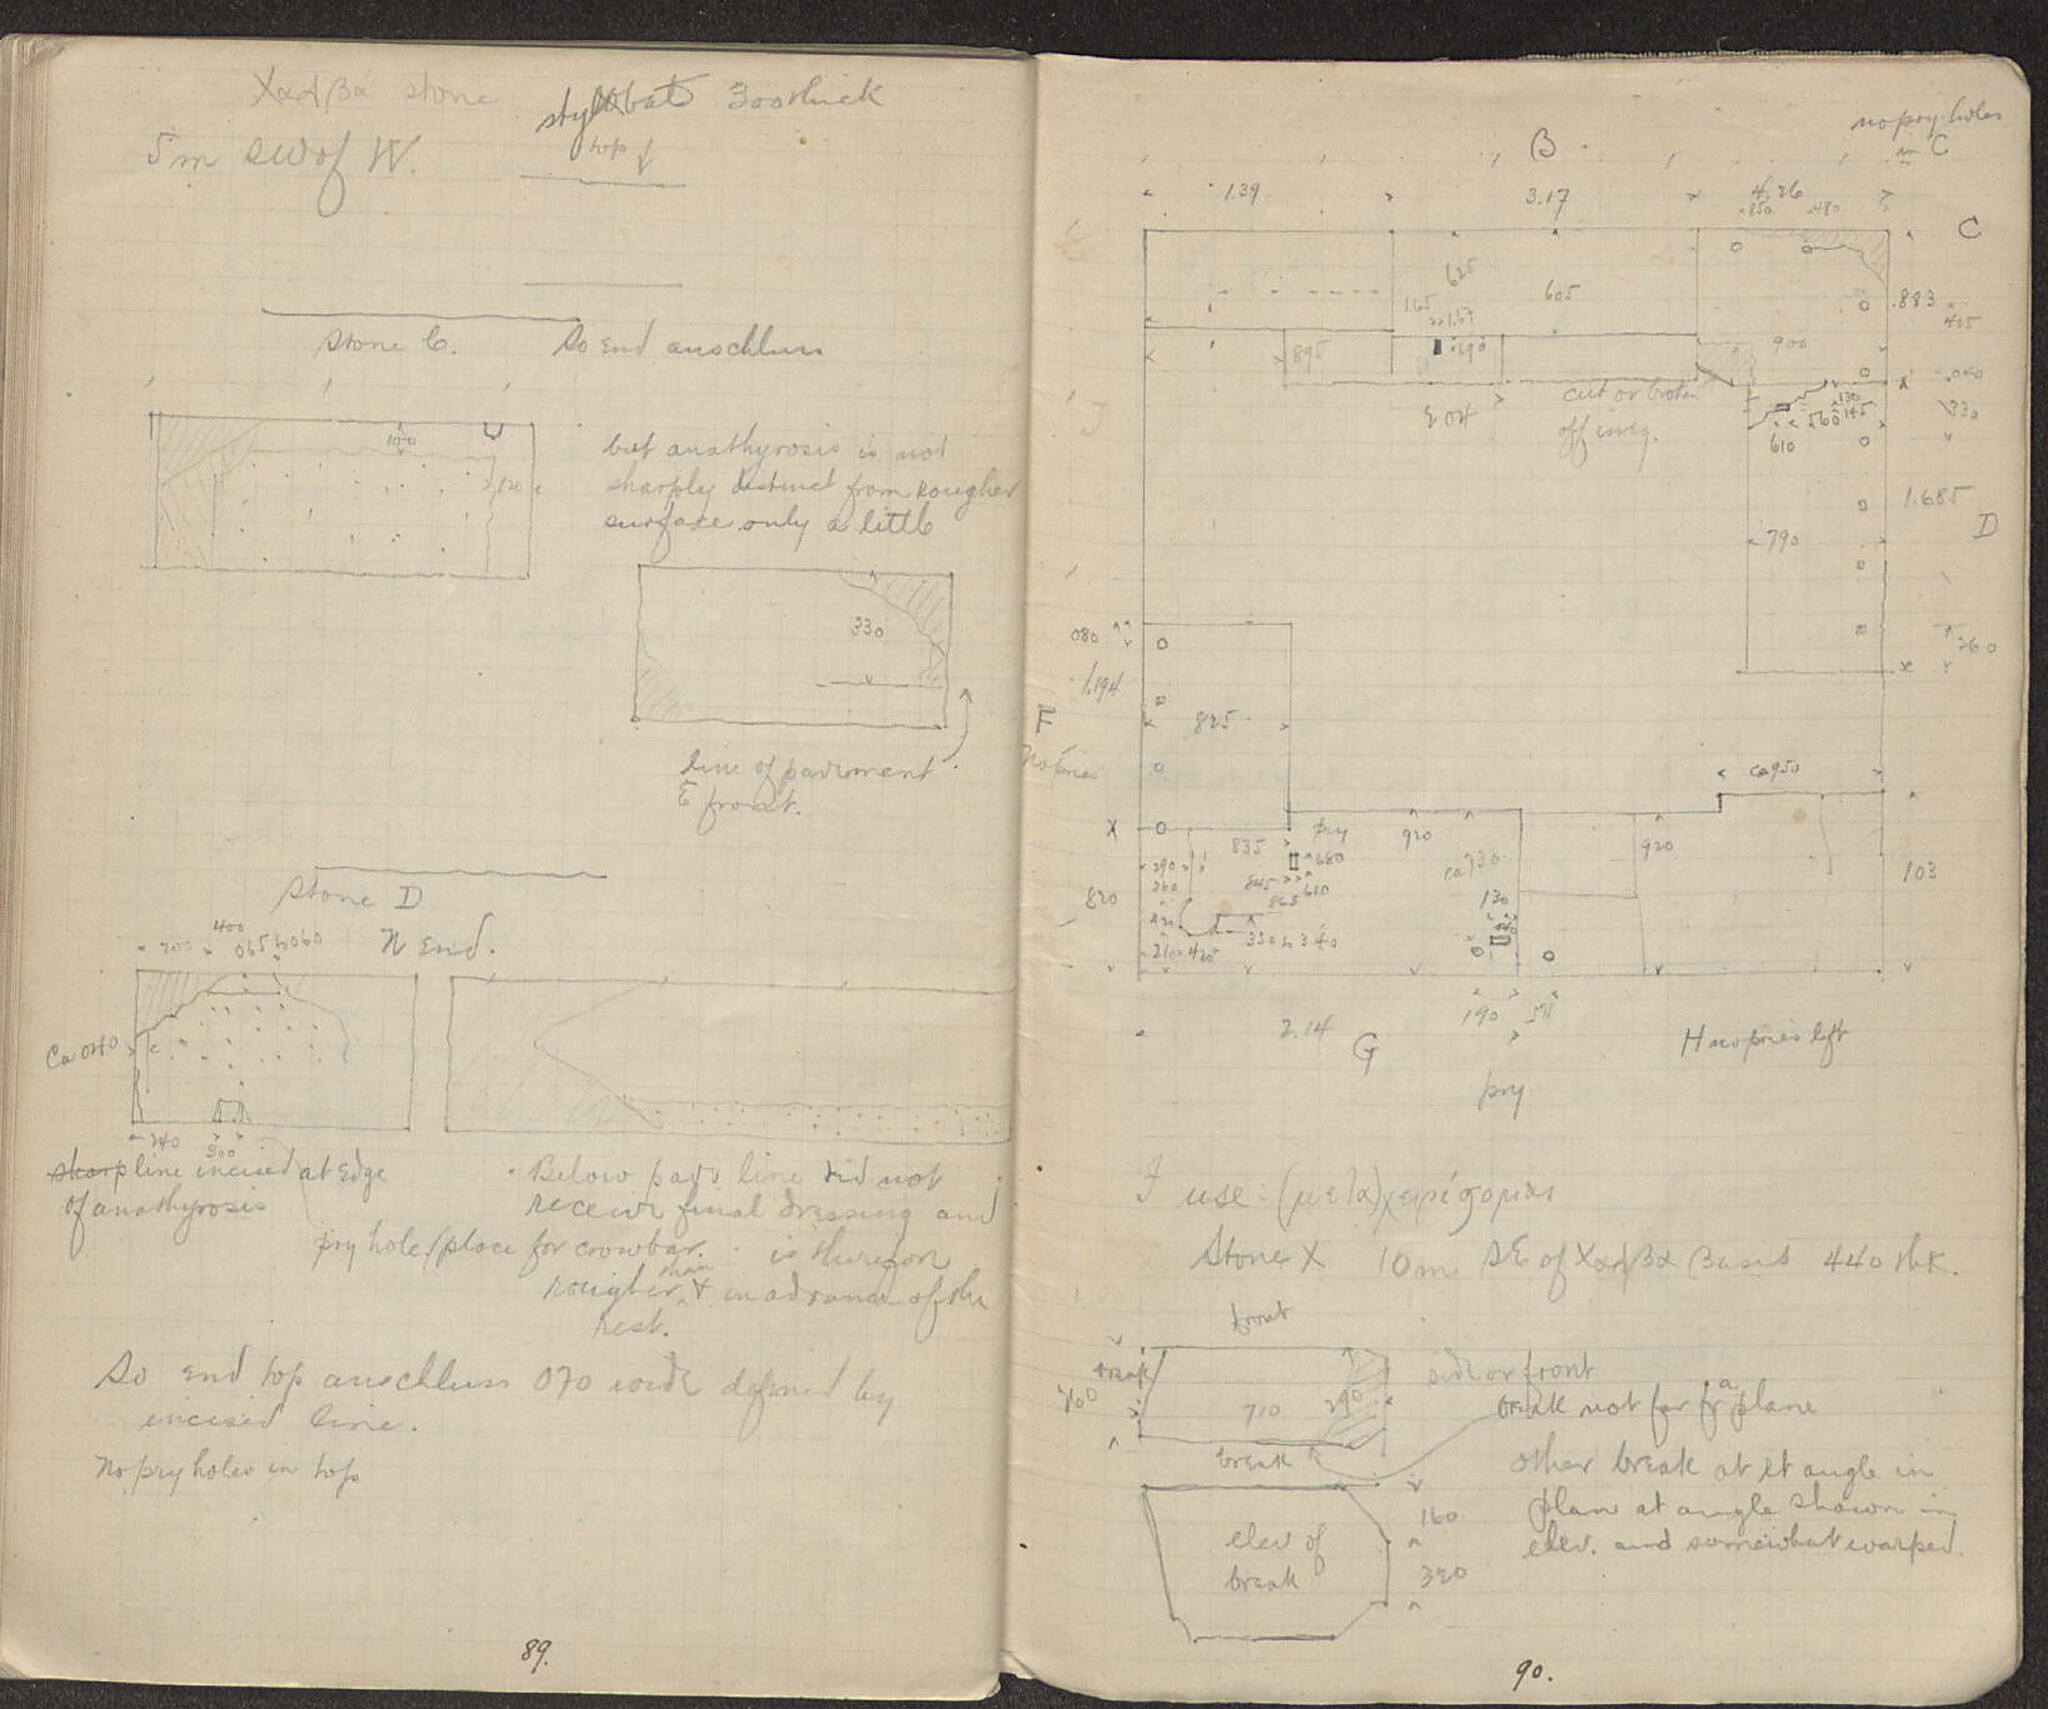 Χαλβα stone
stylobat 300 thick
top
5 m SW of W.
Stone C.
So End anschluss
100
120
but anathyrosis is not
sharply distinct from rougher
surface only a little
330
line of pavement
E front.
Stone D
N End.
400
200
065 h 060
Ca 040
240
300
sharp line incised at Edge
of anathyrosis
pry hole / place for crowbar.
Below pav line did not
receive final dressing and
is therefore
rougher than & in advance of the
rest.
So End top anschluss 070 wide defined by
incised line.
No pry holes in top
89.
no pry holes
in C
B
1.39
3.17
4.26
850
480
C
625
605
1.65
.883
405
895
190
900
040
204
cut or broken
off irreg.
130
145
560
610
330
J
1.685
D
790
080
1.194
260
F
No pries
825
ca 950
835
pry
920
920
290
680
ca 730
260
845
610
865
820
130
103
330 h 340
210
420
190
2.14
G
pry
H no pries left
I use: (μετα)χειρίζομαι
Stone X 10 m SE of Χαλβα Basis 440 thk.
front
break
700
710
290
side or front
break not far fr a plane
break
other break at rt angle in
plan at angle shown in
elev. and somewhat warped.
160
elev of
break
320
90.